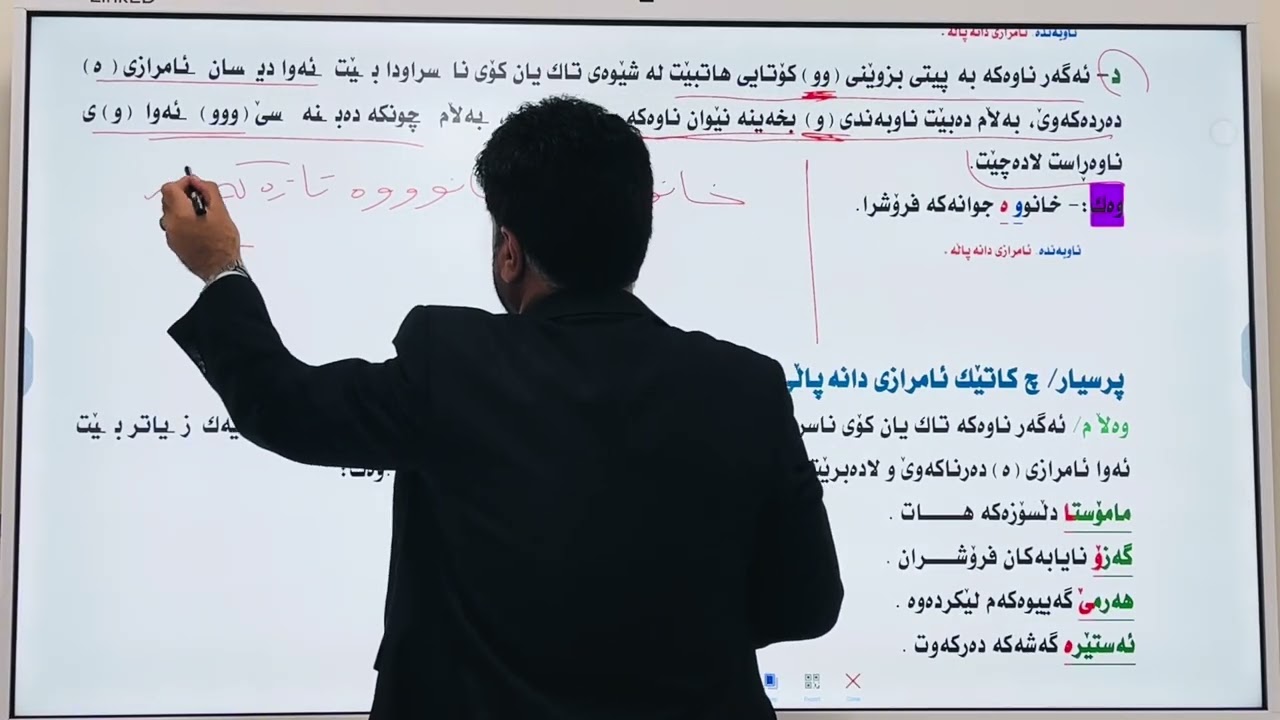 ناوبەندە ئامرازی دانە پاڵە .
د- ئەگەر ناوەکە بە پیتی بزوێنی (وو) کۆتایی هاتبێت لە شێوەی تاك یان کۆی نا سراودا بێت ئەوا دیسان ئامرازی (ە)
دەردەکەوێ، بەڵام دەبێت ناوبەندی (و) بخەینە نێوان ناوەکە بەڵام چونکە دەبنە سێ (ووو) ئەوا (و) ی
ناوەڕاست لادەچێت.
وەك :- خانوو ە جوانەکە فرۆشرا.
تازە
ناوبەندە ئامرازی دانە پاڵە .
پرسیار/ چ کاتێك ئامرازی دانە پاڵی
وەڵام/ ئەگەر ناوەکە تاك یان کۆی زیاتر بێت
ئەوا ئامرازی (ە) دەرناکەوێ و
مامۆستا دڵسۆزەکە هـــات .
گەزۆ نایابەکان فرۆشـــران .
هەرمێ گەییوەکەم لێکردەوە .
ئەستێرە گەشەکە دەرکەوت .